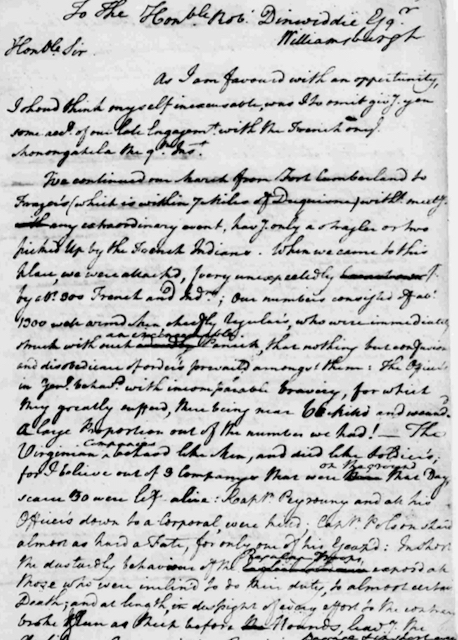 To The Honble Robt Dinwiddie Esqr
Williamsburgh
Honble Sir.
As I am favourd with an oppertunity,
I shoud think myself inexcusable, was I to omit givg you
some acct of our late Engagemt with the French on ye
Monongahela the 9th Inst.
We continued our March from Fort Cumberland to
Frazers (which is within 7 Miles of Duquisne) witht meetg
with any extraordinary event, havg only a stragler or two
picked up by the French Indians. When we came to this
place, we were attackd, (very unexpectedly
by abt 300 French and Inds; Our numbers consisted of abt
1300 well armd Men, chiefly Regulars, who were immediately
struck with such Panick, that nothing but confusion
and disobedience of orders prevaild amongst them: The Officers
in Genl behavd with incomparable bravery, for which
they greatly sufferd, there being near 60 killd and woundd
A large Proportion out of the number we had! — The
Companies
Virginian behavd like Men, and died like Soldiers;
on the ground
for I believe out of 3 Companys that were that Day
scarce 30 were left alive: Captn Peyrouny and all his
Officers down to a Corporal, were killd: Captn Polson shard
almost as hard a Fate, for only one of his Escapd: In short
the dastardly behaviour of the exposed all
those who were inclind to do their duty, to almost certain
Death; and at length, in despight of every effort to the contrary
broke & run as Sheep before Hounds, leavg the